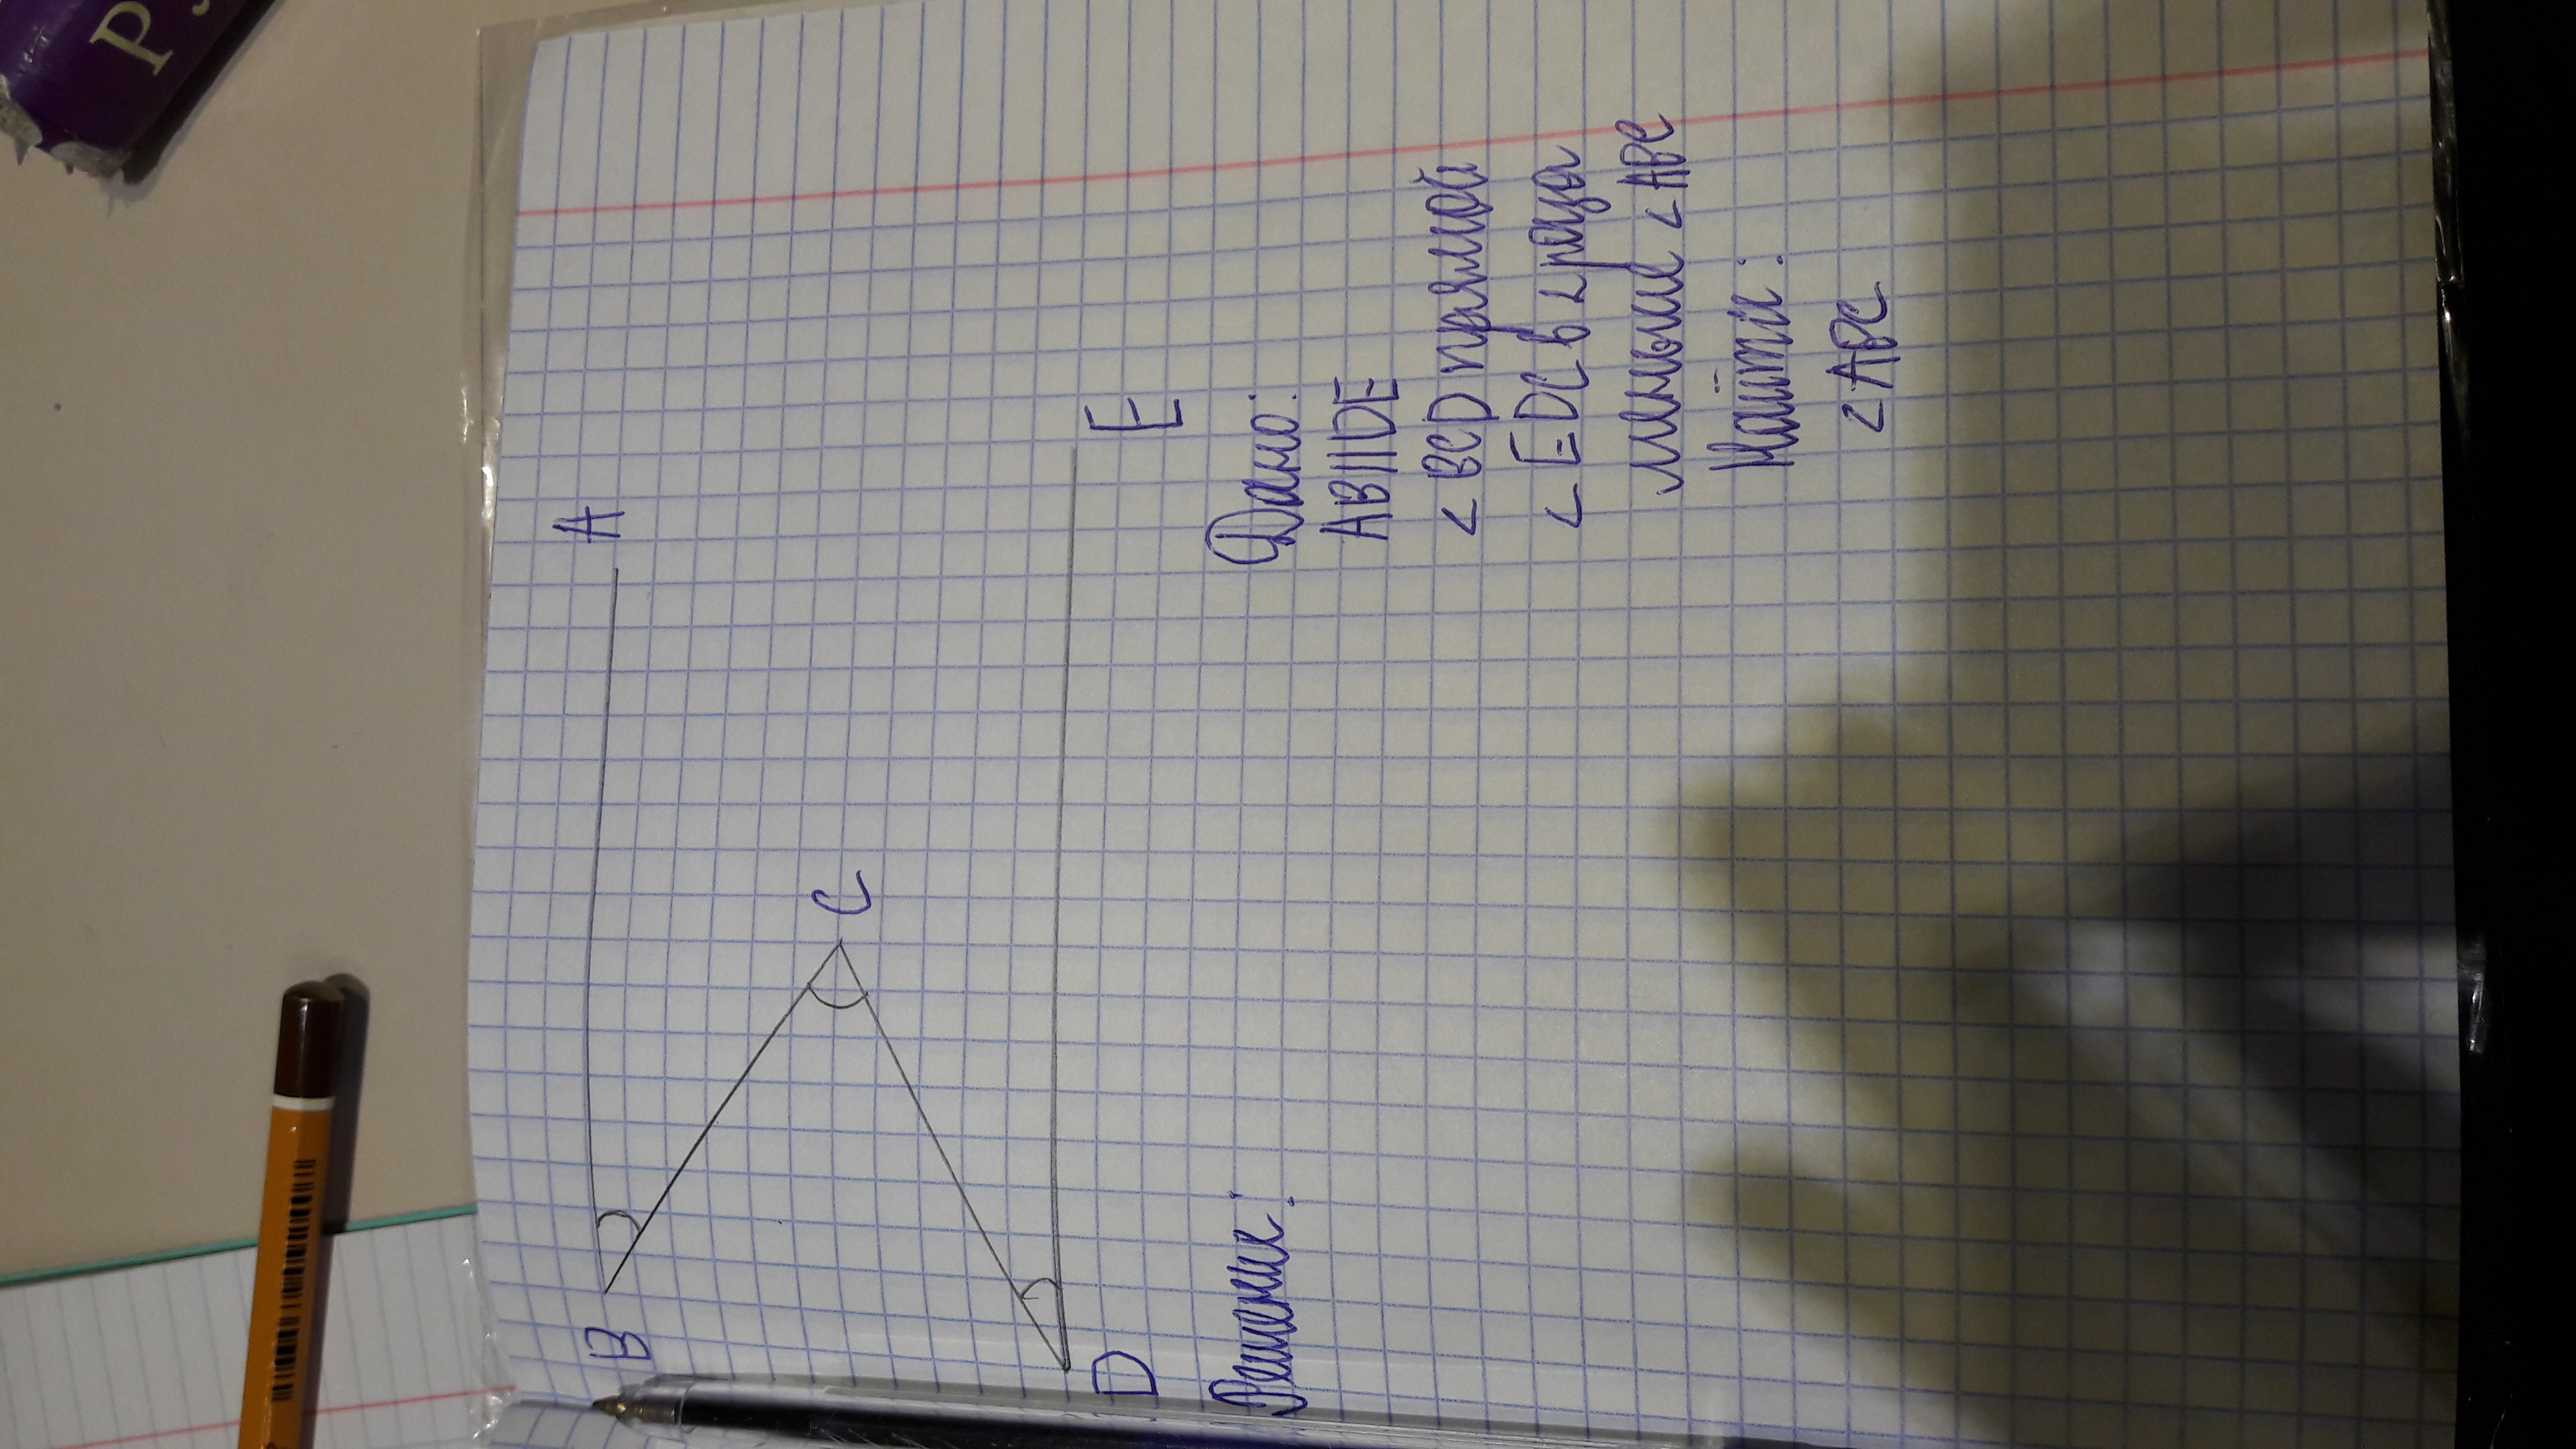 A
B
C
D
E
Дано:
AB||DE
<BCD прямой
<EDC в 2 раза
меньше <ABC
Найти:
<ABC
Решение: